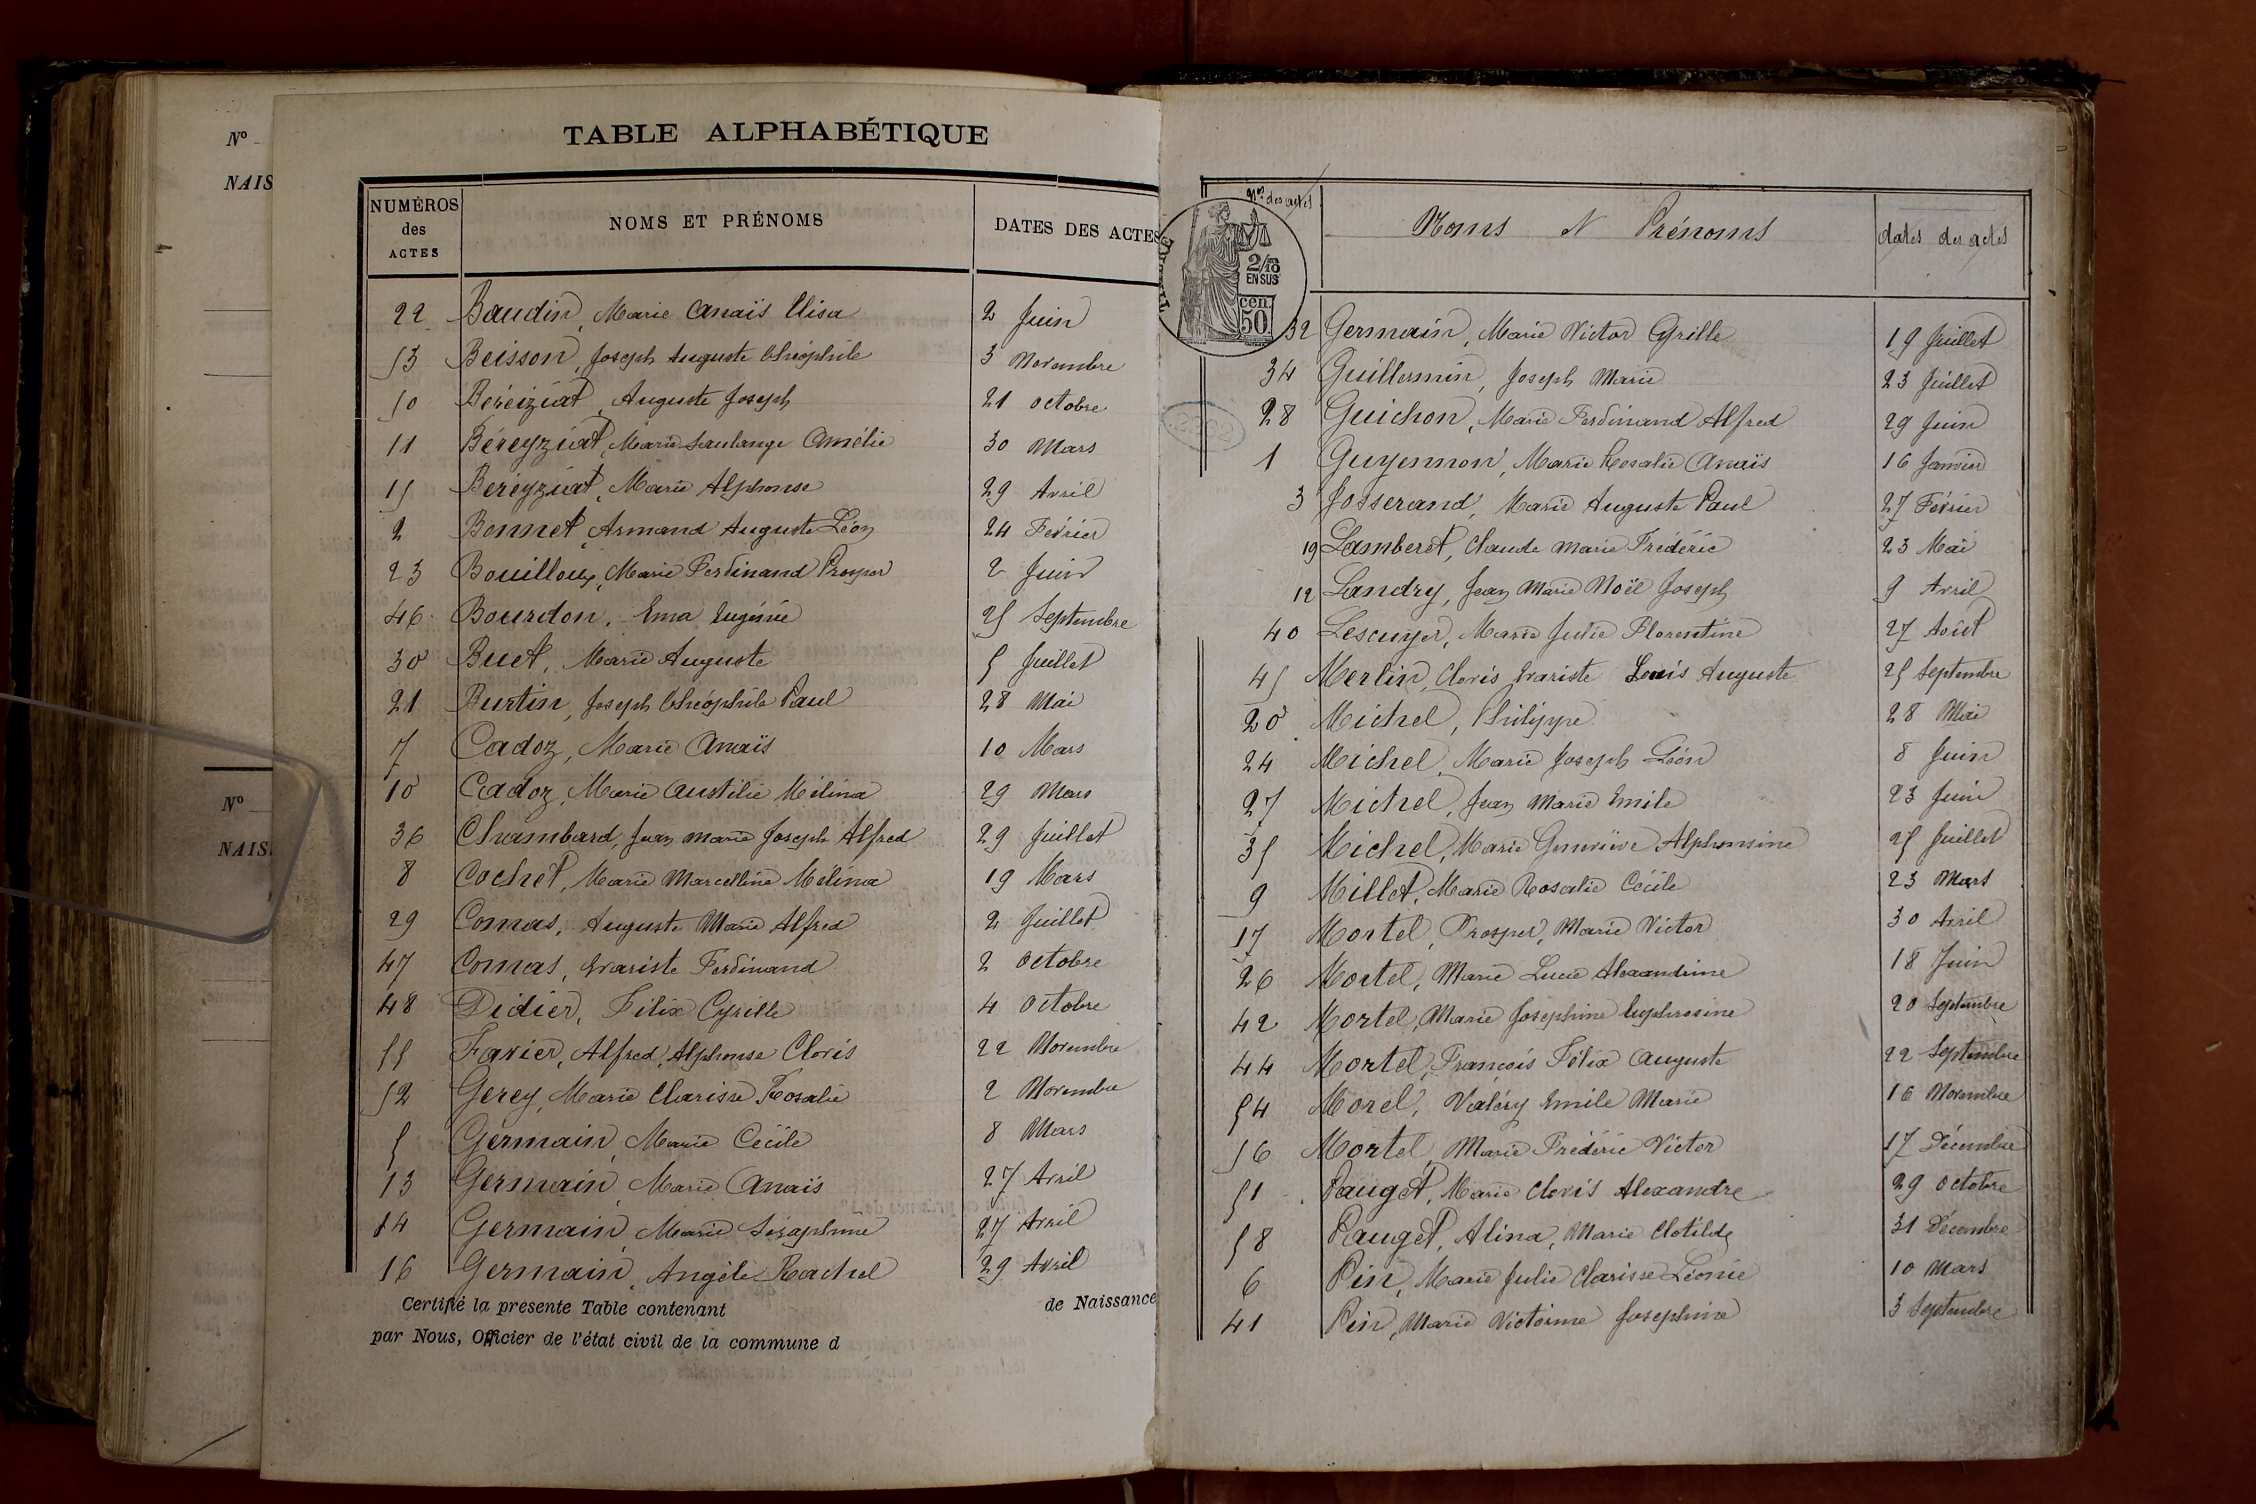 Nº
NAIS
Nº
NAIS
TABLE ALPHABÉTIQUE
NUMÉROS des ACTES NOMS ET PRÉNOMS DATES DES ACTES
22 Baudin, Marie Anaïs Elisa 2 Juin
53 Beisson, Joseph Auguste Théophile 3 Novembre
50 Béréiziat, Auguste Joseph 21 octobre
11 Béreyziat, Marie Saulange Amélie 30 Mars
15 Béreyziat, Marie Alphonse 29 Avril
2 Bonnet, Armand Auguste Léon 24 Février
23 Bouilloux, Marie Ferdinand Prosper 2 Juin
46 Bourdon, Ema Eugénie 25 Septembre
30 Buet, Marie Auguste 5 Juillet
21 Burtin, Joseph Théophile Paul 28 Mai
7 Cadoz, Marie Anaïs 10 Mars
10 Cadoz, Marie Austilie Mélina 29 Mars
36 Chambard, Jean Marie Joseph Alfred 29 Juillet
8 Cochet, Marie Marcelline Mélina 19 Mars
29 Comas, Auguste Marie Alfred 2 Juillet
47 Comas, Evariste Ferdinand 2 Octobre
48 Didier, Félix Cyrille 4 Octobre
55 Favier, Alfred, Alphonse Clovis 22 Novembre
52 Gerey, Marie Clarisse Rosalie 2 Novembre
5 Germain, Marie Cécile 8 Mars
13 Germain, Marie Anaïs 27 Avril
14 Germain, Marie Séraphine 27 Avril
16 Germain, Angèle Rachel 29 Avril
Certifié la présente Table contenant de Naissance
par Nous, Officier de l'état civil de la commune d
Nos des actes Noms & Prénoms dates des actes
2/10
EN SUS
50 cen.
32 Germain, Marie Victor Cyrille 19 Juillet
34 Guillermin, Joseph Marie 23 Juillet
28 Guichon, Marie Ferdinand Alfred 29 Juin
1 Guyennon, Marie Rosalie Anaïs 16 Janvier
3 Josserand, Marie Auguste Paul 27 Février
19 Lamberet, Claude Marie Frédéric 23 Mai
12 Landry, Jean Marie Noël Joseph 9 Avril
40 Lescuyer, Marie Julie Florentine 27 Août
45 Merlin, Clovis Evariste Louis Auguste 25 Septembre
20 Michel, Philippe 28 Mai
24 Michel, Marie Joseph Léon 8 Juin
27 Michel, Jean Marie Emile 23 Juin
35 Michel, Marie Geneviève Alphonsine 25 Juillet
9 Millet, Marie Rosalie Cécile 23 Mars
17 Mortel, Prosper, Marie Victor 30 Avril
26 Mortel, Marie Lucie Alexandrine 18 Juin
42 Mortel, Marie Joséphine Euphrosine 20 Septembre
44 Mortel, François Félix Auguste 22 Septembre
54 Morel, Valéry Emile Marie 16 Novembre
56 Mortel, Marie Frédéric Victor 17 Décembre
51 Pauget, Marie Clovis Alexandre 29 Octobre
58 Pauget, Alina, Marie Clotilde 31 Décembre
6 Pin, Marie Julie Clarisse Léonie 10 Mars
41 Pin, Marie Victorine Joséphine 3 Septembre